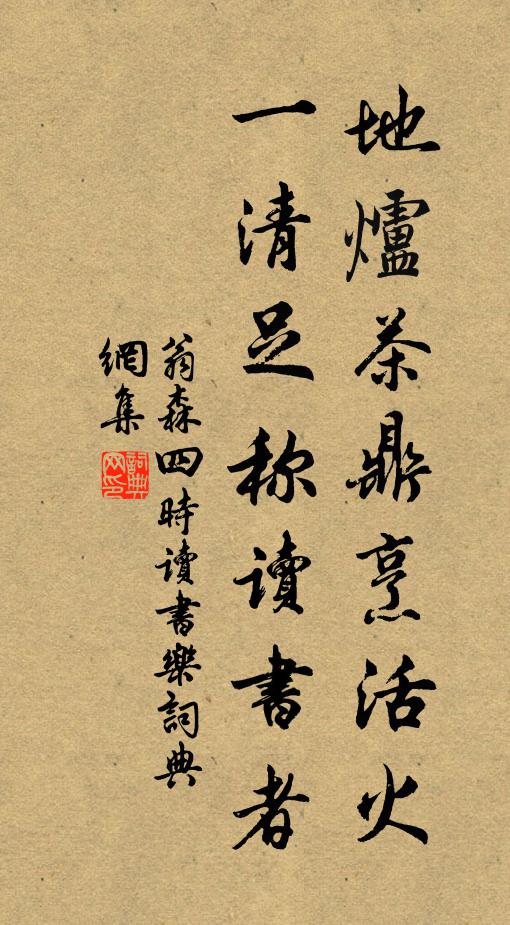 地爐茶鼎烹活火
一清足称讀書者
翁森四時讀書樂詞典
網集
詞典
网印